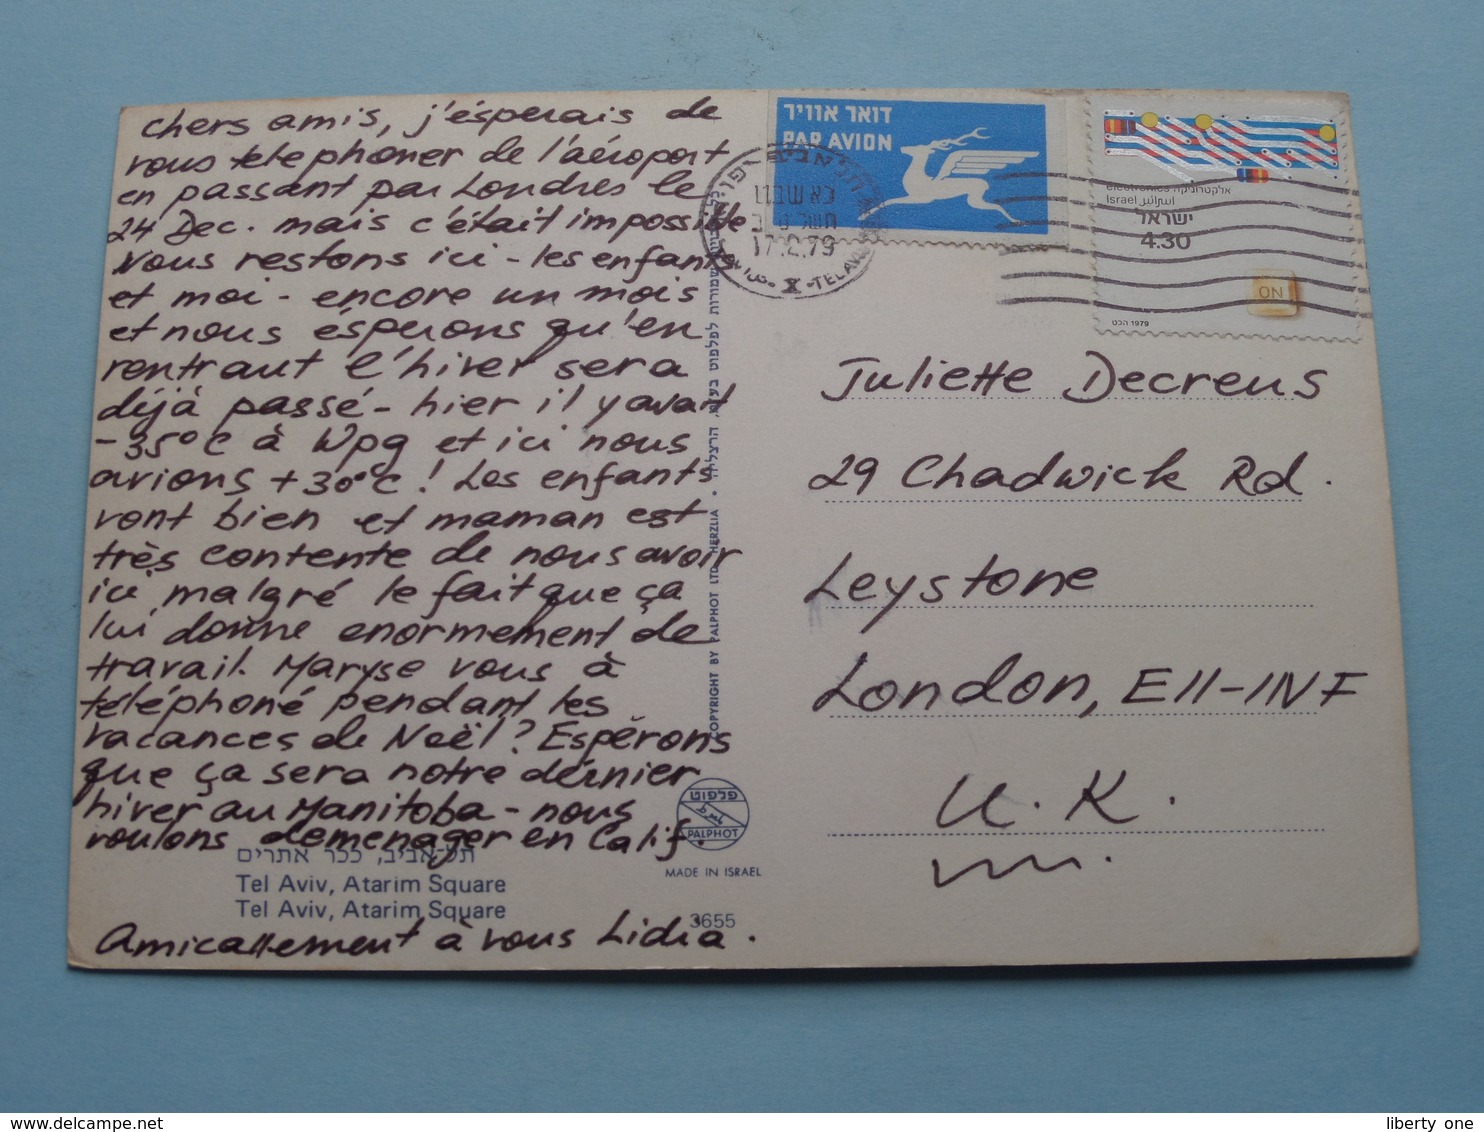 chers amis, j'ésperais de
vous telephoner de l'aéroport
en passant par Londres le
24 Dec. mais c'était impossible
Nous restons ici - les enfants
et moi - encore un mois
et nous ésperons qu'en
rentraut l'hiver sera
déjà passé - hier il y avait
-35°C à Wpg et ici nous
avions +30°C! Les enfants
vont bien et maman est
très contente de nous avoir
ici malgré le fait que ça
lui donne enormement de
travail. Maryse vous à
téléphoné pendant les
vacances de Noël? Espérons
que ça sera notre dérnier
hiver au Manitoba - nous
voulons demenager en Calif.
תל-אביב, ככר אתרים
Tel Aviv, Atarim Square
Tel Aviv, Atarim Square
Amicallement à vous Lidia.
COPYRIGHT BY PALPHOT LTD. HERZLIA •
פלפוט
PALPHOT
MADE IN ISRAEL
3655
דואר אוויר
PAR AVION
17.2.79
TELAV
electronics אלקטרוניקה
Israel اسرائيل
ישראל
4.30
ON
הכט 1979
Juliette Decreus
29 Chadwick Rd.
Leystone
London, E11-1NF
U.K.
liberty one